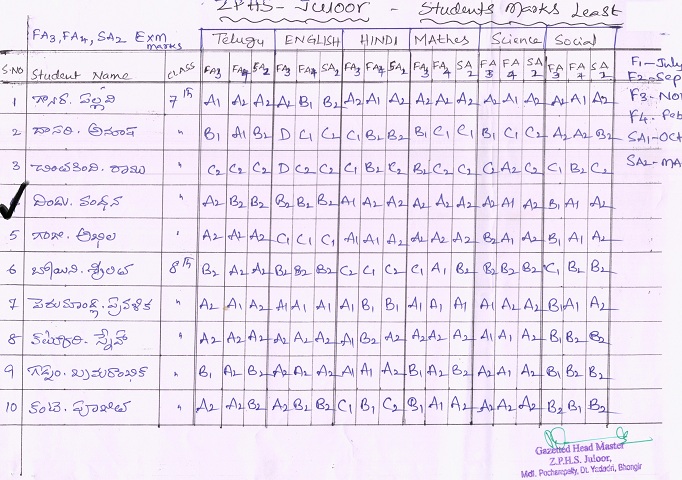 ZPHS- Juloor - Students Marks Least
FA3, FA4, SA2 Exm marks
Telugu ENGLISH HINDI MAthes Science Social
S.NO Student Name CLASS FA3 FA4 SA2 FA3 FA4 SA2 FA3 FA4 SA2 FA3 FA4 SA2 FA3 FA4 SA2 FA3 FA4 SA2
F1-July
F2-Sep
F3-Nov
F4-Feb
SA1-OCT
SA2-MA
1 7th A1 A2 A2 A2 B1 B2 A2 A1 A2 A2 A2 A2 A2 A2 A2 A2 A1 A2
2 దాసరి. అనూష " B1 A1 B2 D C1 C2 C1 B2 B2 B1 C1 C1 B1 C1 C2 A2 A2 B2
3 " C2 C2 C2 D C2 C2 C1 B2 C2 B2 C2 C2 C2 A2 C2 C1 B2 C2
A2 B2 B2 B2 B2 B2 A1 A2 A2 A2 A2 A2 A2 A1 A2 B1 A1 A2
5 గంజి. అఖిల " A2 A2 A2 C1 C1 C1 A1 A1 A2 A2 A2 A2 B2 A1 A2 B1 A1 A2
6 8th B2 A2 A2 B2 B2 B2 C2 C1 C2 C1 A1 B2 B2 B2 B2 C1 B2 B2
7 " A2 A1 A2 A1 A1 A1 A1 B1 B1 A1 A1 A1 A1 A2 A2 B1 A1 A2
8 " A2 A2 A2 A2 A2 A2 A1 B2 A2 A2 A2 A2 A1 A1 A2 B2 B2 B2
9 " B1 A2 B2 A2 A2 A2 A1 A1 A2 B1 A2 B2 A2 A2 A2 B1 B2 B2
10 " A2 A2 B2 A2 B2 B2 C1 B1 C2 B1 A1 A2 A2 A2 A2 B2 B1 B2
Gazetted Head Master
Z.P.H.S. Juloor,
Mdl. Pochampally, Dt. Yadadri, Bhongir